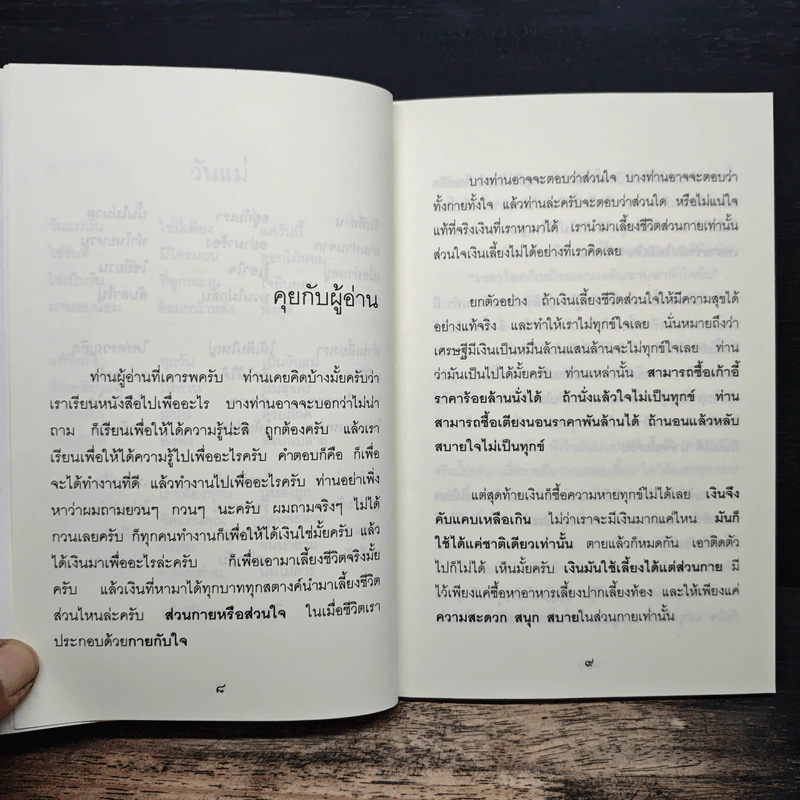 คุยกับผู้อ่าน
ท่านผู้อ่านที่เคารพครับ ท่านเคยคิดบ้างมั้ยครับว่า
เราเรียนหนังสือไปเพื่ออะไร บางท่านอาจจะบอกว่าไม่น่า
ถาม ก็เรียนเพื่อให้ได้ความรู้น่ะสิ ถูกต้องครับ แล้วเรา
เรียนเพื่อให้ได้ความรู้ไปเพื่ออะไรครับ คำตอบก็คือ ก็เพื่อ
จะได้ทำงานที่ดี แล้วทำงานไปเพื่ออะไรครับ ท่านอย่าเพิ่ง
หาว่าผมถามยวนๆ กวนๆ นะครับ ผมถามจริงๆ ไม่ได้
กวนเลยครับ ก็ทุกคนทำงานก็เพื่อให้ได้เงินใช่มั้ยครับ แล้ว
ได้เงินมาเพื่ออะไรล่ะครับ ก็เพื่อเอามาเลี้ยงชีวิตจริงมั้ย
ครับ แล้วเงินที่หามาได้ทุกบาททุกสตางค์นำมาเลี้ยงชีวิต
ส่วนไหนล่ะครับ ส่วนกายหรือส่วนใจ ในเมื่อชีวิตเรา
ประกอบด้วยกายกับใจ
๘
บางท่านอาจจะตอบว่าส่วนใจ บางท่านอาจจะตอบว่า
ทั้งกายทั้งใจ แล้วท่านล่ะครับจะตอบว่าส่วนใด หรือไม่แน่ใจ
แท้ที่จริงเงินที่เราหามาได้ เรานำมาเลี้ยงชีวิตส่วนกายเท่านั้น
ส่วนใจเงินเลี้ยงไม่ได้อย่างที่เราคิดเลย
ยกตัวอย่าง ถ้าเงินเลี้ยงชีวิตส่วนใจให้มีความสุขได้
อย่างแท้จริง และทำให้เราไม่ทุกข์ใจเลย นั่นหมายถึงว่า
เศรษฐีมีเงินเป็นหมื่นล้านแสนล้านจะไม่ทุกข์ใจเลย ท่าน
ว่ามันเป็นไปได้มั้ยครับ ท่านเหล่านั้น สามารถซื้อเก้าอี้
ราคาร้อยล้านนั่งได้ ถ้านั่งแล้วใจไม่เป็นทุกข์ ท่าน
สามารถซื้อเตียงนอนราคาพันล้านได้ ถ้านอนแล้วหลับ
สบายใจไม่เป็นทุกข์
แต่สุดท้ายเงินก็ซื้อความหายทุกข์ไม่ได้เลย เงินจึง
คับแคบเหลือเกิน ไม่ว่าเราจะมีเงินมากแค่ไหน มันก็
ใช้ได้แค่ชาติเดียวเท่านั้น ตายแล้วก็หมดกัน เอาติดตัว
ไปก็ไม่ได้ เห็นมั้ยครับ เงินมันใช้เลี้ยงได้แต่ส่วนกาย มี
ไว้เพียงแค่ซื้อหาอาหารเลี้ยงปากเลี้ยงท้อง และให้เพียงแค่
ความสะดวก สนุก สบายในส่วนกายเท่านั้น
๙